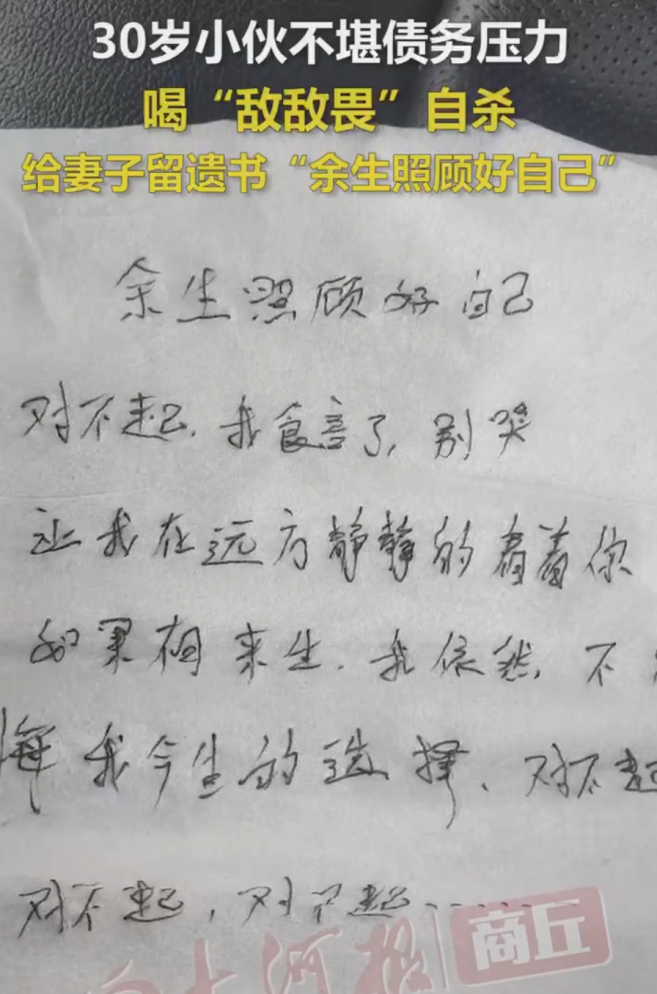 30岁小伙不堪债务压力
喝“敌敌畏”自杀
给妻子留遗书“余生照顾好自己”
余生照顾好自己
对不起.我食言了,别哭
让我在远方静静的看着你
如果有来生.我依然.不
悔我今生的选择、对不起
对不起,对不起......
大河报
商丘